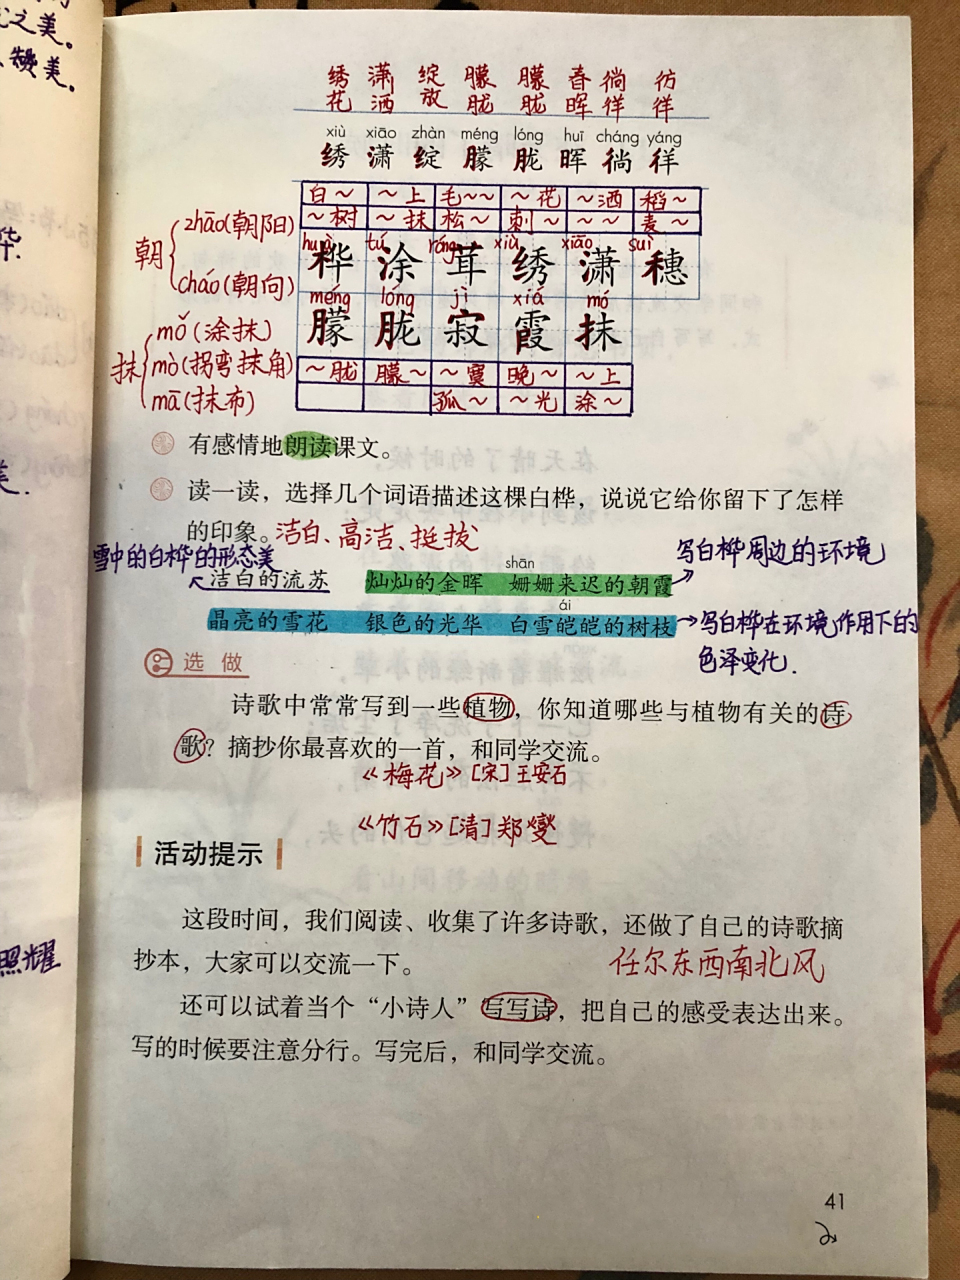 之美。
赞美。
绣 潇 绽 朦 朦 春 徜 彷
花 洒 放 胧 胧 晖 徉 徉
xiù xiāo zhàn méng lóng huī cháng yáng
绣 潇 绽 朦 胧 晖 徜 徉
白～ ～上 毛～～ ～花 ～洒 稻～
～树 ～抹 松～ 刺～ ～～ 麦～
朝 zhāo(朝阳)
cháo(朝向)
huà tú róng xiù xiāo suì
桦 涂 茸 绣 潇 穗
méng lóng jì xiá mó
朦 胧 寂 霞 抹
抹 mǒ(涂抹)
mò(拐弯抹角)
mā(抹布)
～胧 朦～ ～寞 晚～ ～上
孤～ ～光 涂～
有感情地朗读课文。
读一读，选择几个词语描述这棵白桦，说说它给你留下了怎样
的印象。洁白、高洁、挺拔
雪中的白桦的形态美
写白桦周边的环境
shān
洁白的流苏 灿灿的金晖 姗姗来迟的朝霞
ái
晶亮的雪花 银色的光华 白雪皑皑的树枝
写白桦在环境作用下的
色泽变化.
选做
诗歌中常常写到一些植物，你知道哪些与植物有关的诗
歌？摘抄你最喜欢的一首，和同学交流。
《梅花》[宋]王安石
《竹石》[清]郑燮
活动提示
这段时间，我们阅读、收集了许多诗歌，还做了自己的诗歌摘
抄本，大家可以交流一下。
任尔东西南北风
还可以试着当个“小诗人”写写诗，把自己的感受表达出来。
写的时候要注意分行。写完后，和同学交流。
照耀
41